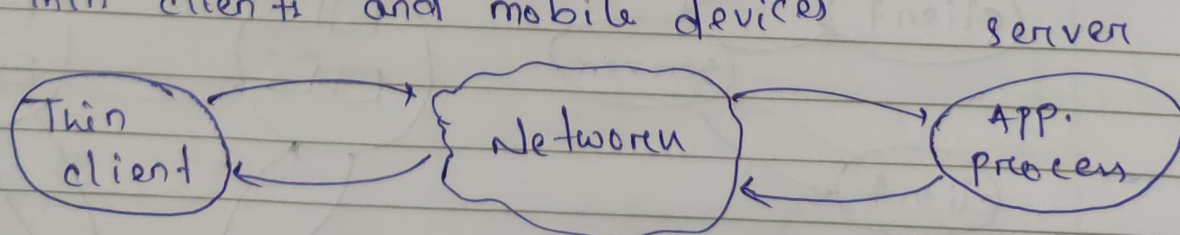 thin clients and mobile devices
server
Thin client
Network
App. process